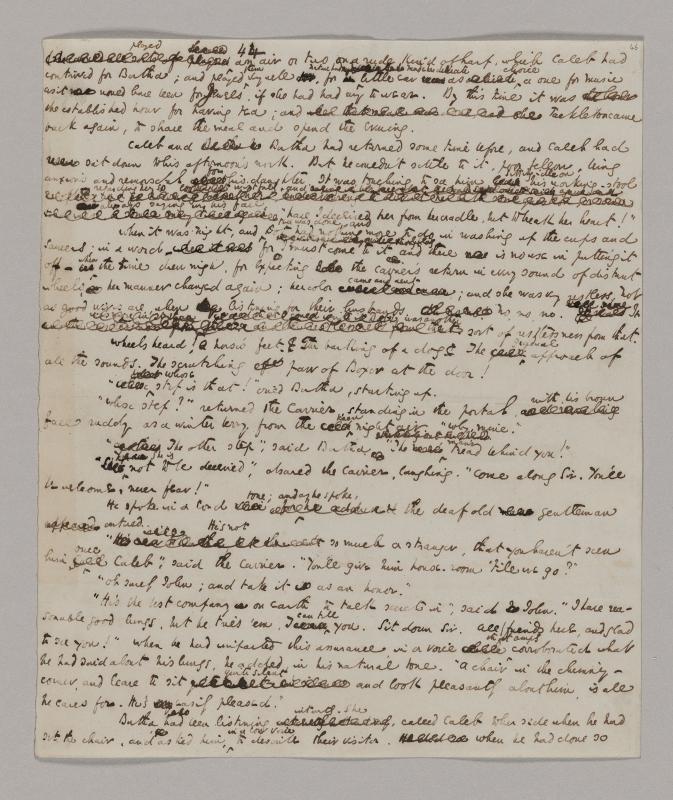 44
46
played an air or two, on a rude kind of harp, which Caleb had
contrived for Bertha; and played very well for, little ear was as choice a one for music
as it would have been for jewels, if she had had any to wear. By this time it was
the established hour for having tea; and Tackleton came
back again, to share the meal and spend the evening.
Caleb and Bertha had returned some time before, and Caleb had
sit down to his afternoon's work. But he couldn't settle to it, poor fellow, being
anxious and remorseful for his daughter. It was touching to see him on his working-stool
regarding her so and
saying in his face, "have I deceived her from her cradle, but to break her heart!"
When it was night, and tea was done, and Dot had nothing more to do in washing up the cups and
saucers; in a word for I must come to it and there is no use in putting it
off when the time drew nigh, for expecting the Carrier's return in every sound of distant
wheels; her manner changed again; her color came and went; and she was very restless. Not
as good wives are, when listening for their husbands. no, no, no. It
was another sort of restlessness from that.
Wheels heard! A horse's feet. The barking of a dog. The gradual approach of
all the sounds. The scratching paw of Boxer at the door!
"Whose step is that!" cried Bertha, starting up.
"Whose step?" returned the Carrier, standing in the portal, with his brown
face ruddy as a winter berry, from the keen night air. "Why, mine."
"The other step", said Bertha. "The man's tread behind you!"
"She is not to be deceived", observed the Carrier, laughing. "Come along Sir. You'll
be welcome, never fear!"
He spoke in a loud tone; and as he spoke, the deaf old gentleman
entered.
"He's not so much a stranger, that you haven't seen
him once Caleb", said the Carrier. "You'll give him house-room 'till we go?"
"Oh surely John; and take it as an honor."
"He's the best company on earth to talk secrets in", said John. "I have rea-
sonable good lungs, but he tries 'em, I can tell you. Sit down Sir. All friends here, and glad
to see you!" When he had imparted this assurance, in a voice that amply corroborated what
he had said about his lungs, he added, in his natural tone. "A chair in the chimney-
corner, and leave to sit quite silent and look pleasantly about him, is all
he cares for. He's easily pleased."
Bertha had been listening intently. She called Caleb to her side when he had
set the chair, and asked him, in a low voice to describe their visitor. When he had done so